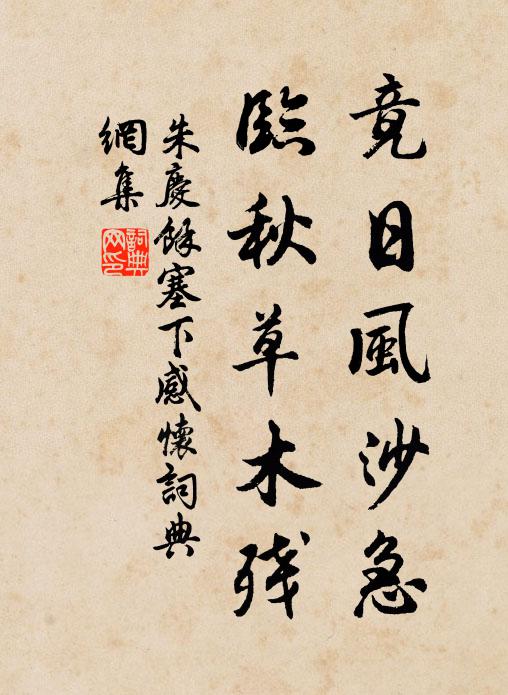 竟日風沙急
臨秋草木残
朱慶餘塞下感懷詞典
網集
詞典网印